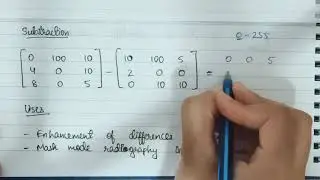 Subtraction
0-255
0 100 10 10 100 5 0 0 5
4 0 10 - 2 0 0 =
8 0 5 0 10 10
Uses
- Enhancement of differences
- Mask mode radiography